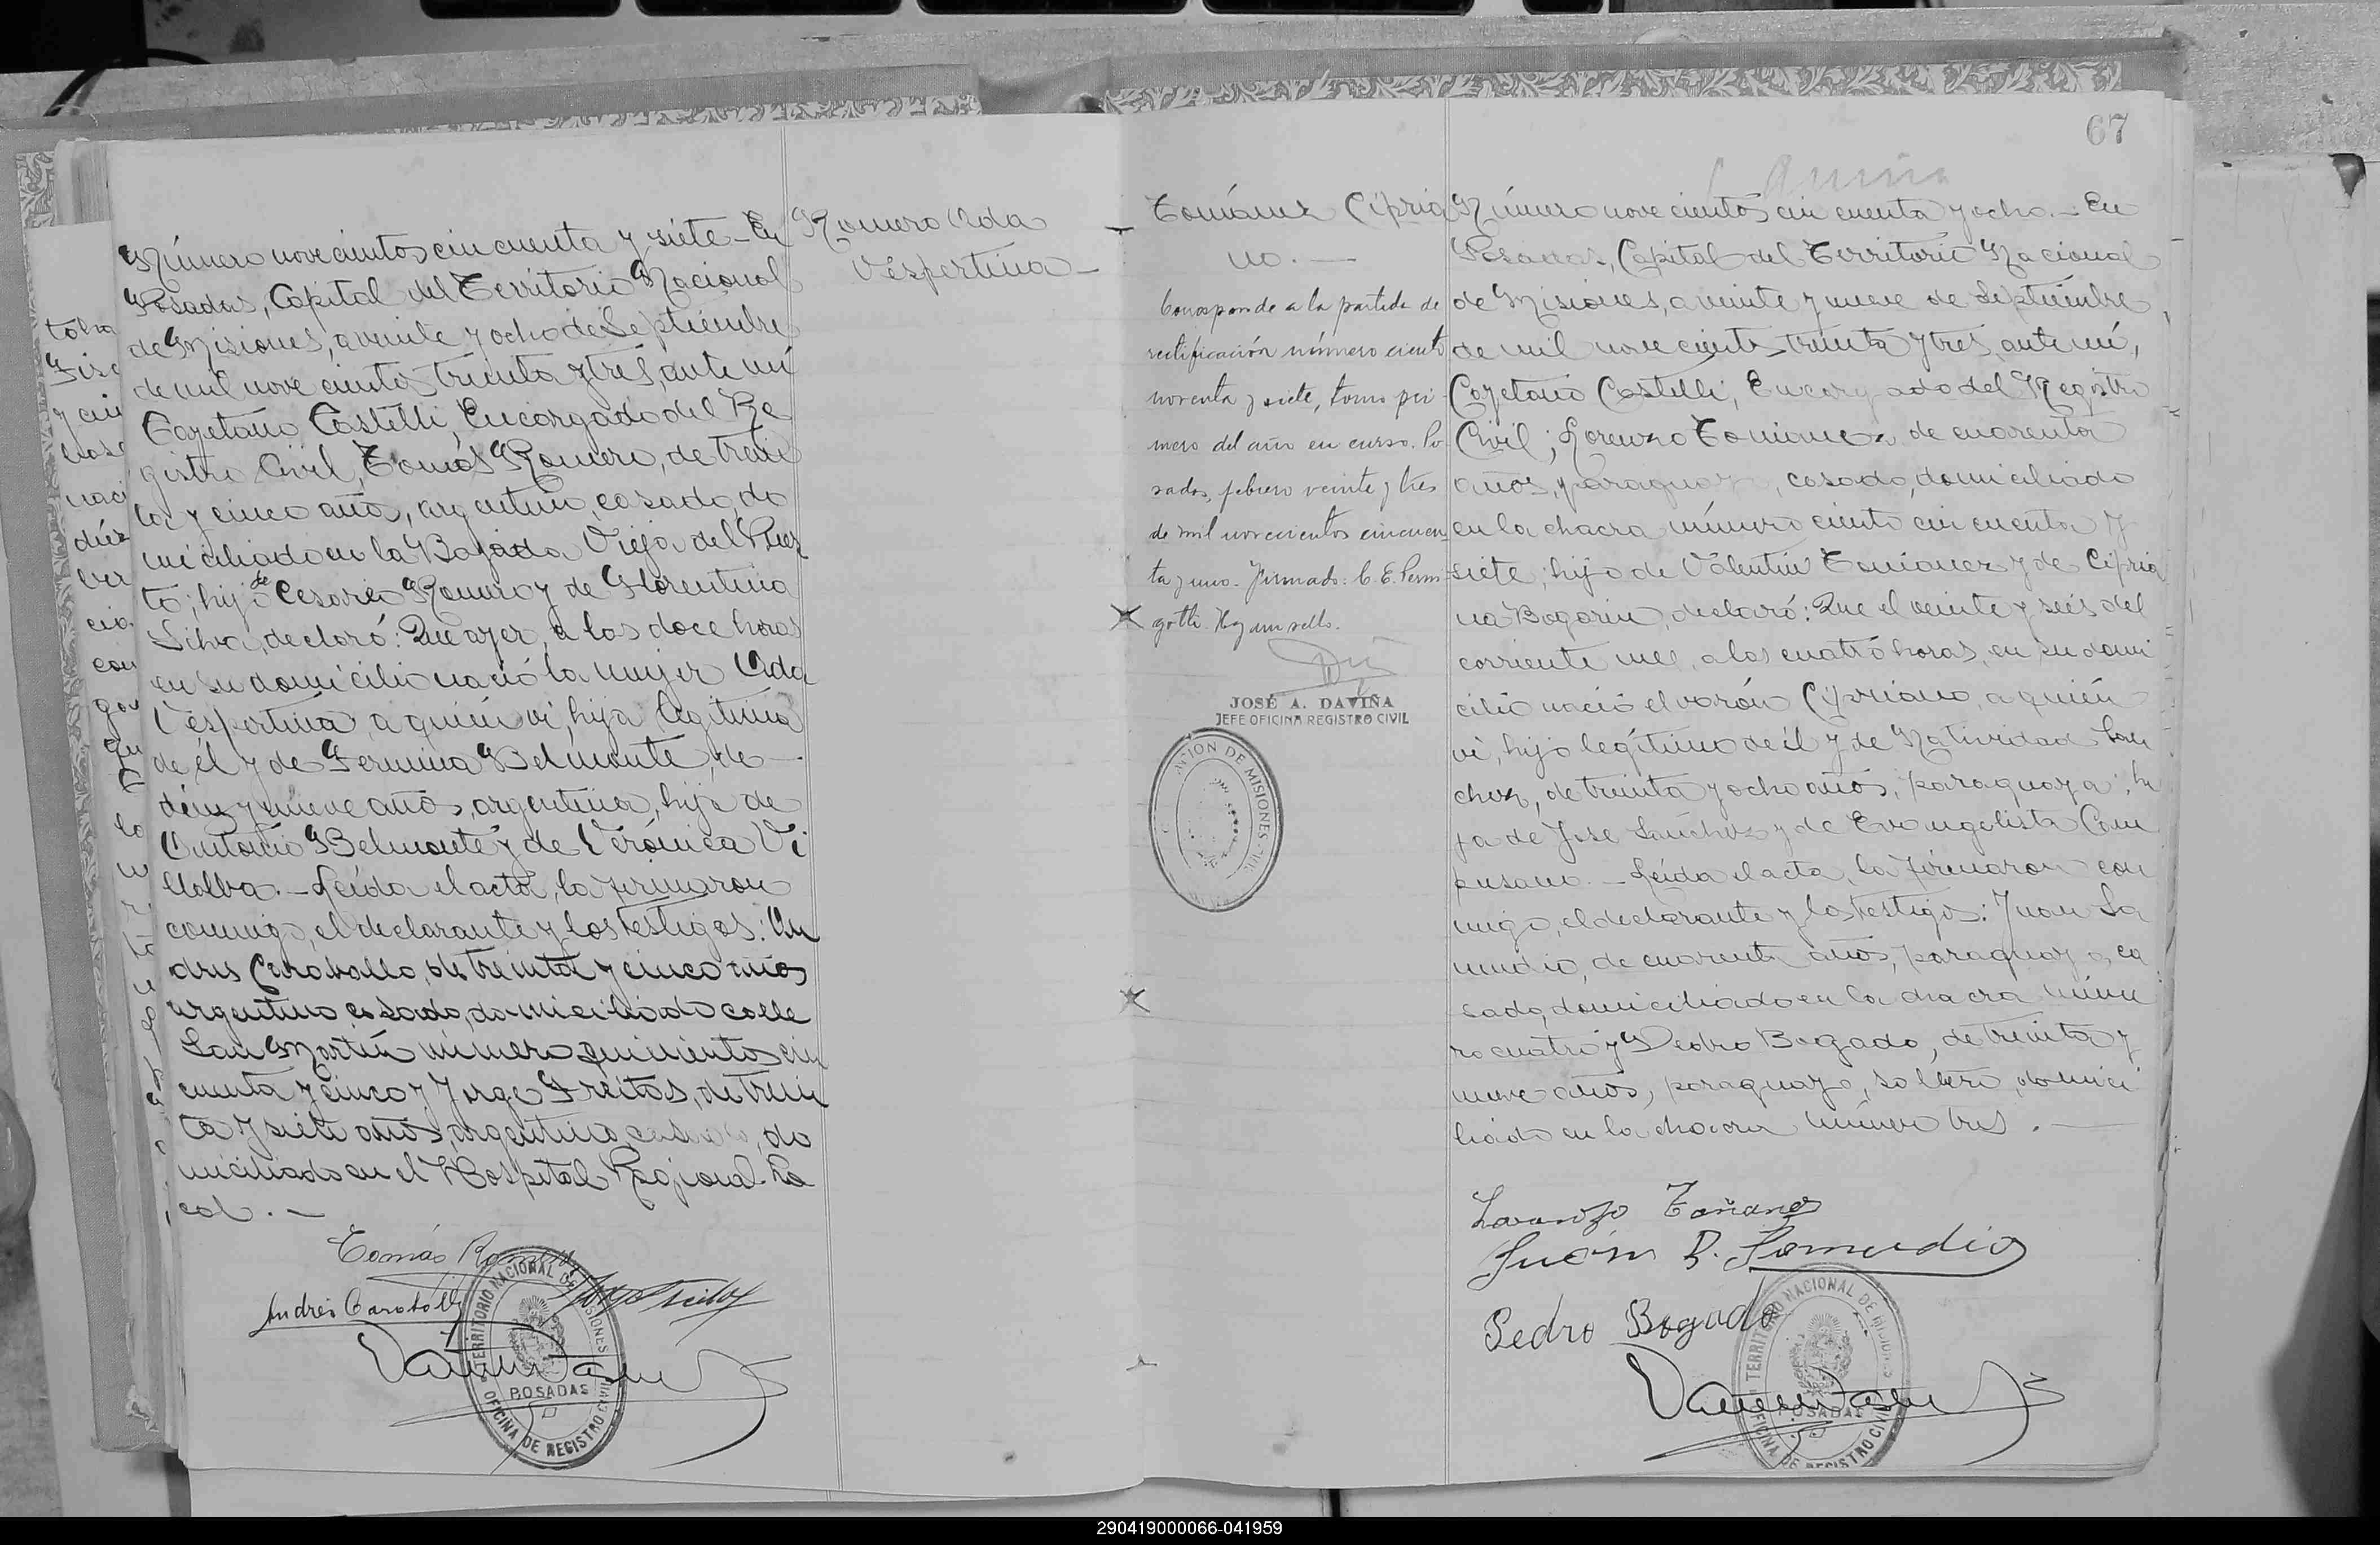 Número novecientos cincuenta y siete - En
Posadas, Capital del Territorio Nacional
de Misiones, a veinte y ocho de Septiembre
de mil nove cientos treinta y tres, ante mi
Cayetano Castelli, Encargado del Re
gistro Civil, Tomás Romero, de trein
ta y cinco años, argentino, casado, do
miciliado en la Bajada Vieja del Puer
to; hijo de Cesareo Romero y de Florentina
Silva, declaró: Que ayer, a las doce horas
en su domicilio nació la mujer Alda
Vespertina, a quien vi, hija legitima
de él y de Fermina Belmonte, de
diez y nueve años, argentina, hija de
Antonio Belmonte y de Verónica Vi
llalba. - Leída el acta, la firmaron
conmigo, el declarante y los testigos: An
drés Caraballo, de treinta y cinco años
argentino casado, domiciliado calle
San Martín número quinientos cin
cuenta y cinco y Jorge Freitas, de trein
ta y siete años, argentino, casado, do
miciliado en el Hospital Regional Lo
cal. -
Tomás Romero
Andrés Caraballo
TERRITORIO NACIONAL DE MISIONES
POSADAS
OFICINA DE REGISTRO CIVIL
Romero Alda
Vespertina -
67
Cipria
no. -
Corresponde a la partida de
rectificación número ciento
noventa y siete, tomo pri-
mero del año en curso. Po-
sadas, febrero veinte y tres
de mil novecientos cincuen-
ta y uno - Firmado: C. E. Permi-
gotti. Hay un sello.
JOSÉ A. DAVIÑA
JEFE OFICINA REGISTRO CIVIL
DE MISIONES
Número nove cientos cin cuenta y ocho. - En
Posadas, Capital del Territorio Nacional
de Misiones, a veinte y nueve de Septiembre
de mil nove cientos treinta y tres, ante mi,
Cayetano Castelli, Encargado del Registro
Civil; Lorenzo de cuarenta
años, paraguayo, casado, domiciliado
en la chacra número ciento cin cuenta y
siete; hijo de Valentin y de Cipria
na Bogarin, declaró: Que el veinte y seis del
corriente mes, a las cuatro horas, en su domi
cilio nació el varón Cipriano, a quién
vi, hijo legítimo de él y de Natividad San
chez, de treinta y ocho años, paraguaya, hi
ja de José Sanchez y de Evangelista Cam
pusano. - Leída el acta, la firmaron con
migo, el declarante y los testigos: Juan Sa
mudio, de cuarenta años, paraguayo, ca
sado, domiciliado en la chacra núme
ro cuatro y Pedro Bogado, de treinta y
nueve años, paraguayo, soltero, domici
liado en la chacra número tres. -
Juan B. Samudio
Pedro Bogado
TERRITORIO NACIONAL DE MISIONES
POSADAS
OFICINA DE REGISTRO CIVIL
290419000066-041959